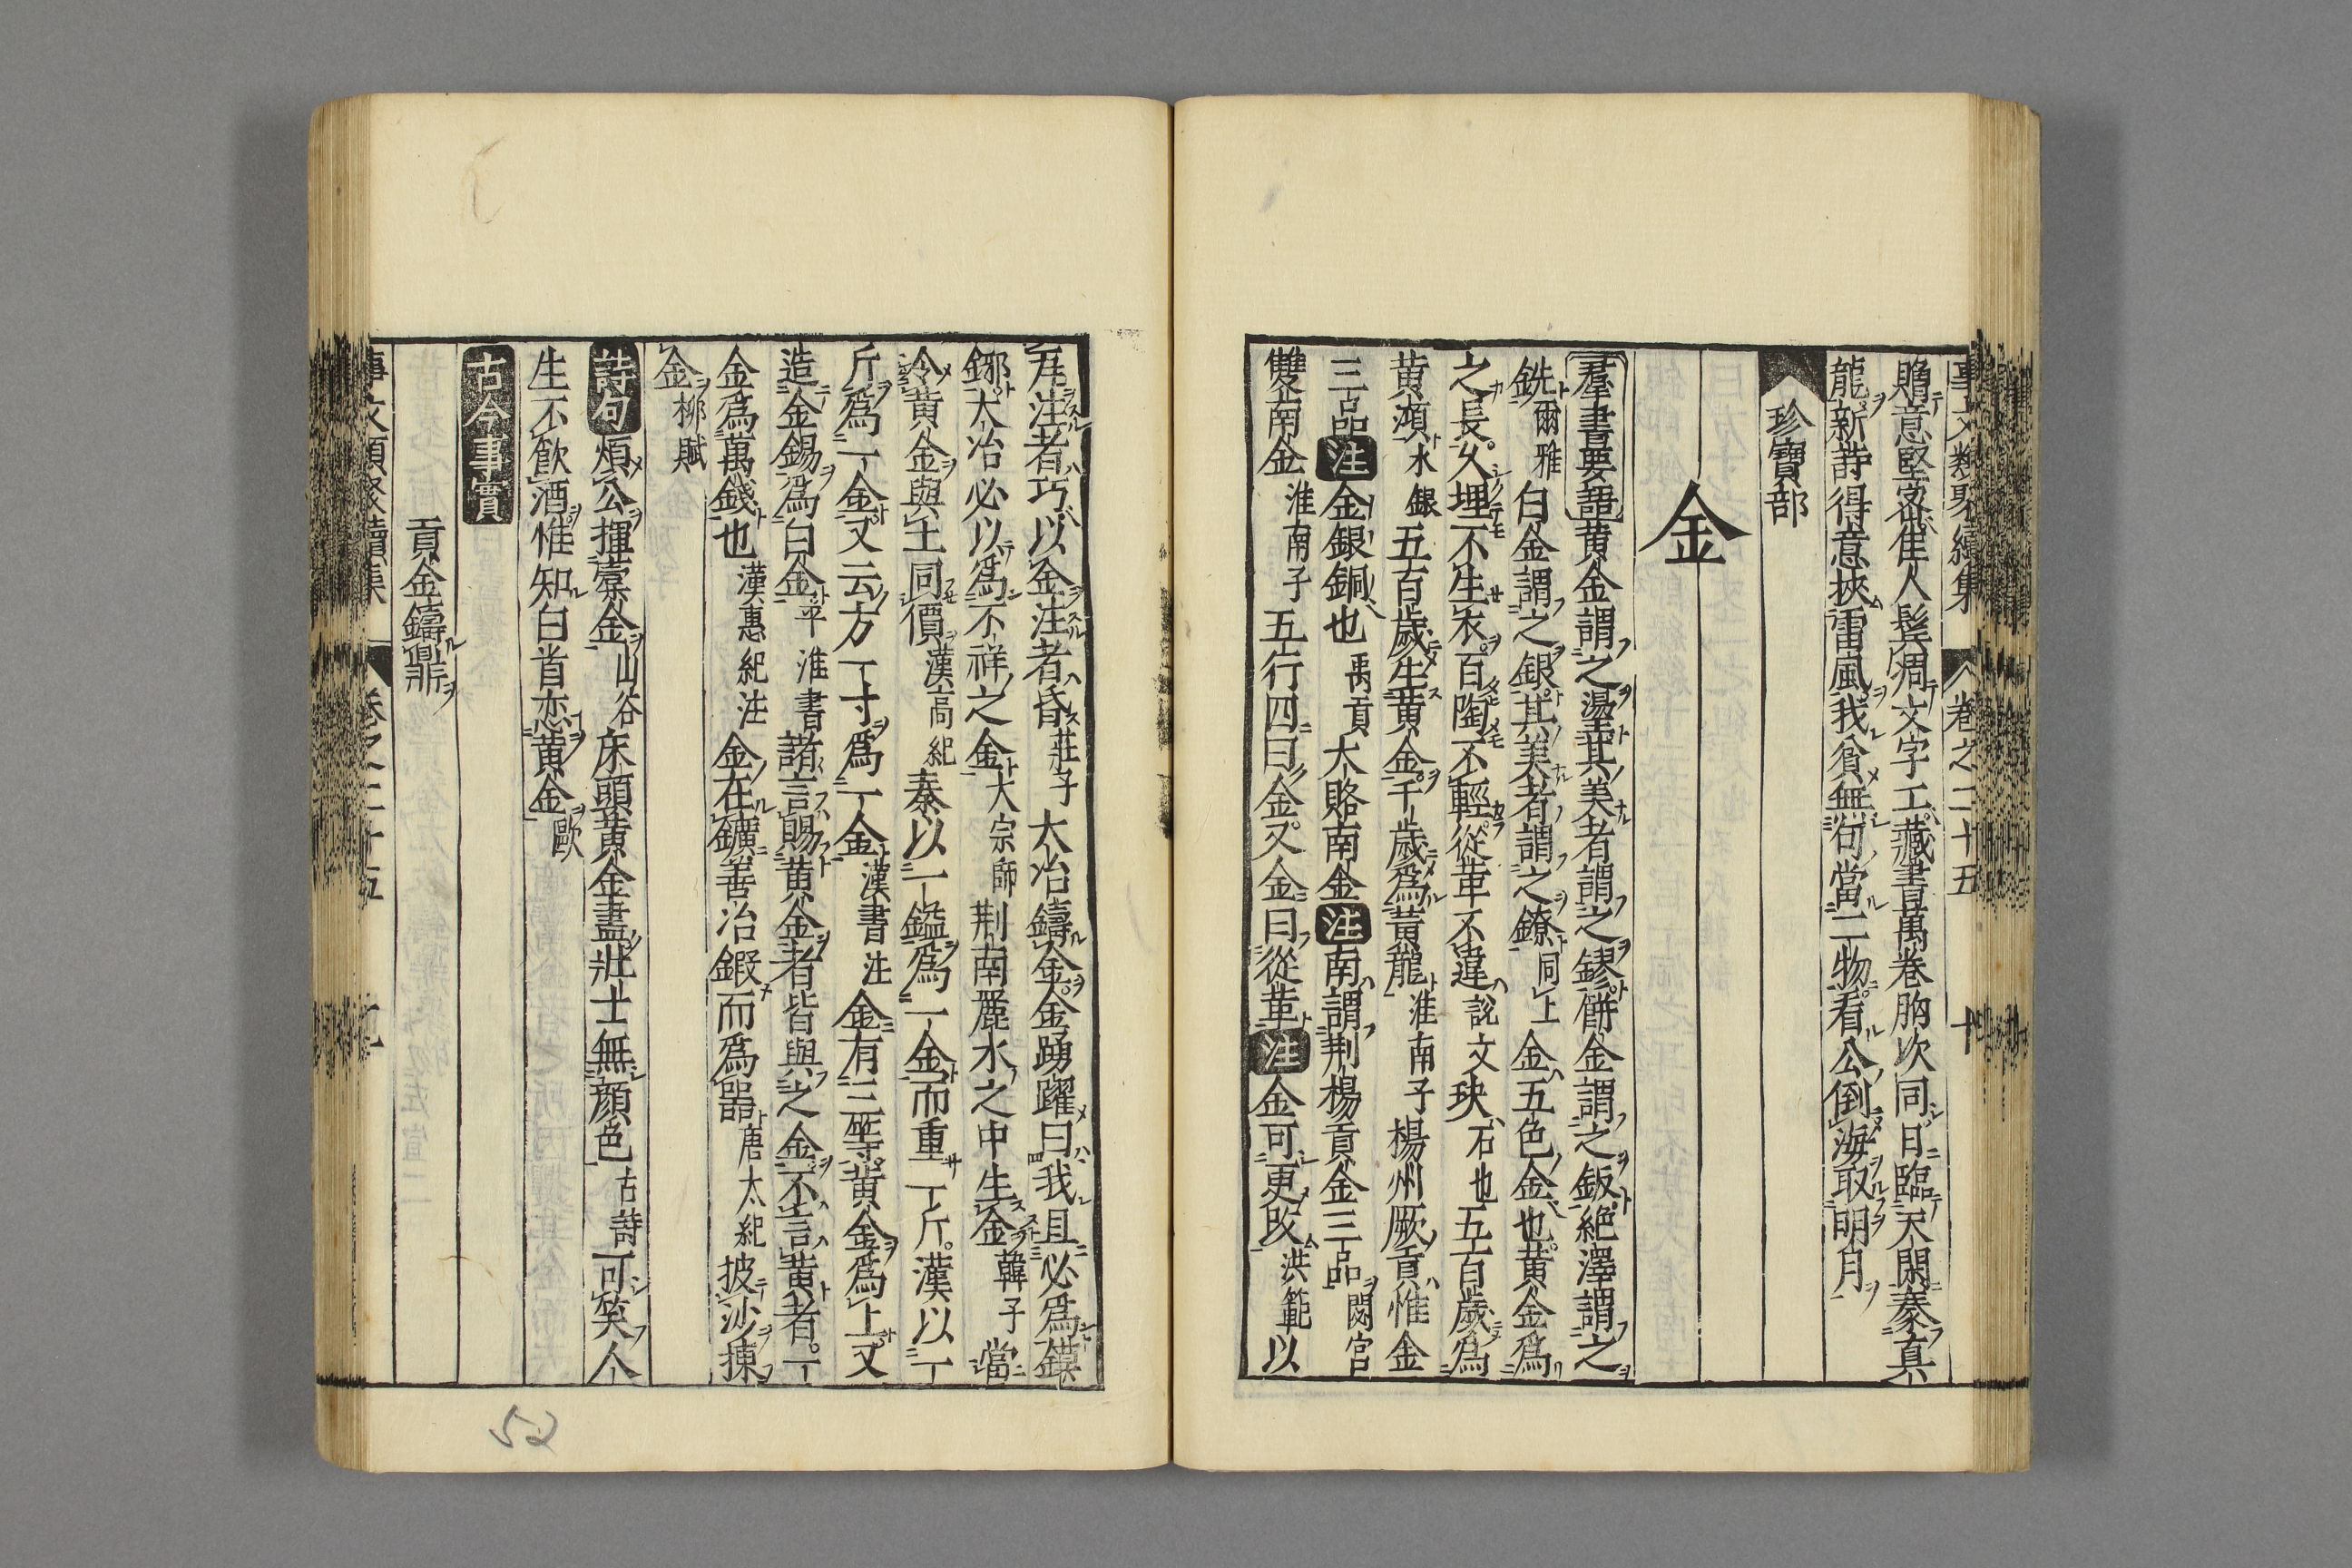 事文類聚續集 卷之二十五 十
贈意堅密隹人鬂凋文字工藏書萬卷胸次同日臨天閑豢真
龍新詩得意挾雷風我貧無句當二物看公倒海取明月
珍寶部
金
羣書要語黃金謂之璗其美者謂之鏐餅金謂之鈑絕澤謂之
銑爾雅白金謂之銀其美者謂之鐐同上金五色金也黃金爲
之長久埋不生衣百陶不輕從革不違說文玦石也五百歲爲
黃澒水銀五百歲生黃金千歲爲黃龍淮南子楊州厥貢惟金
三品注金銀銅也禹貢大賂南金注南謂荆楊貢金三品閟宮
雙南金淮南子五行四曰金又金曰從革注金可更改洪範以
瓦注者巧以金注者昏莊子大冶鑄金金踴躍曰我且必爲鏌
鋣大冶必以爲不祥之金大宗師荆南麗水之中生金韓子當
令黃金與土同價漢高紀秦以一鎰爲一金而重一斤漢以一
斤爲一金又云方一寸爲一金漢書注金有三等黃金爲上又
造金錫爲白金平淮書諸言賜黃金者皆與之金不言黃者一
金爲萬錢也漢惠紀注金在鑛善冶鍜而爲器唐太紀披沙揀
金柳賦
詩句煩公揮橐金山谷床頭黃金盡壯士無顔色古詩可笑人
生不飲酒惟知白首恋黃金歐
古今事實
貢金鑄鼎
事文類聚續集 卷之二十五
52